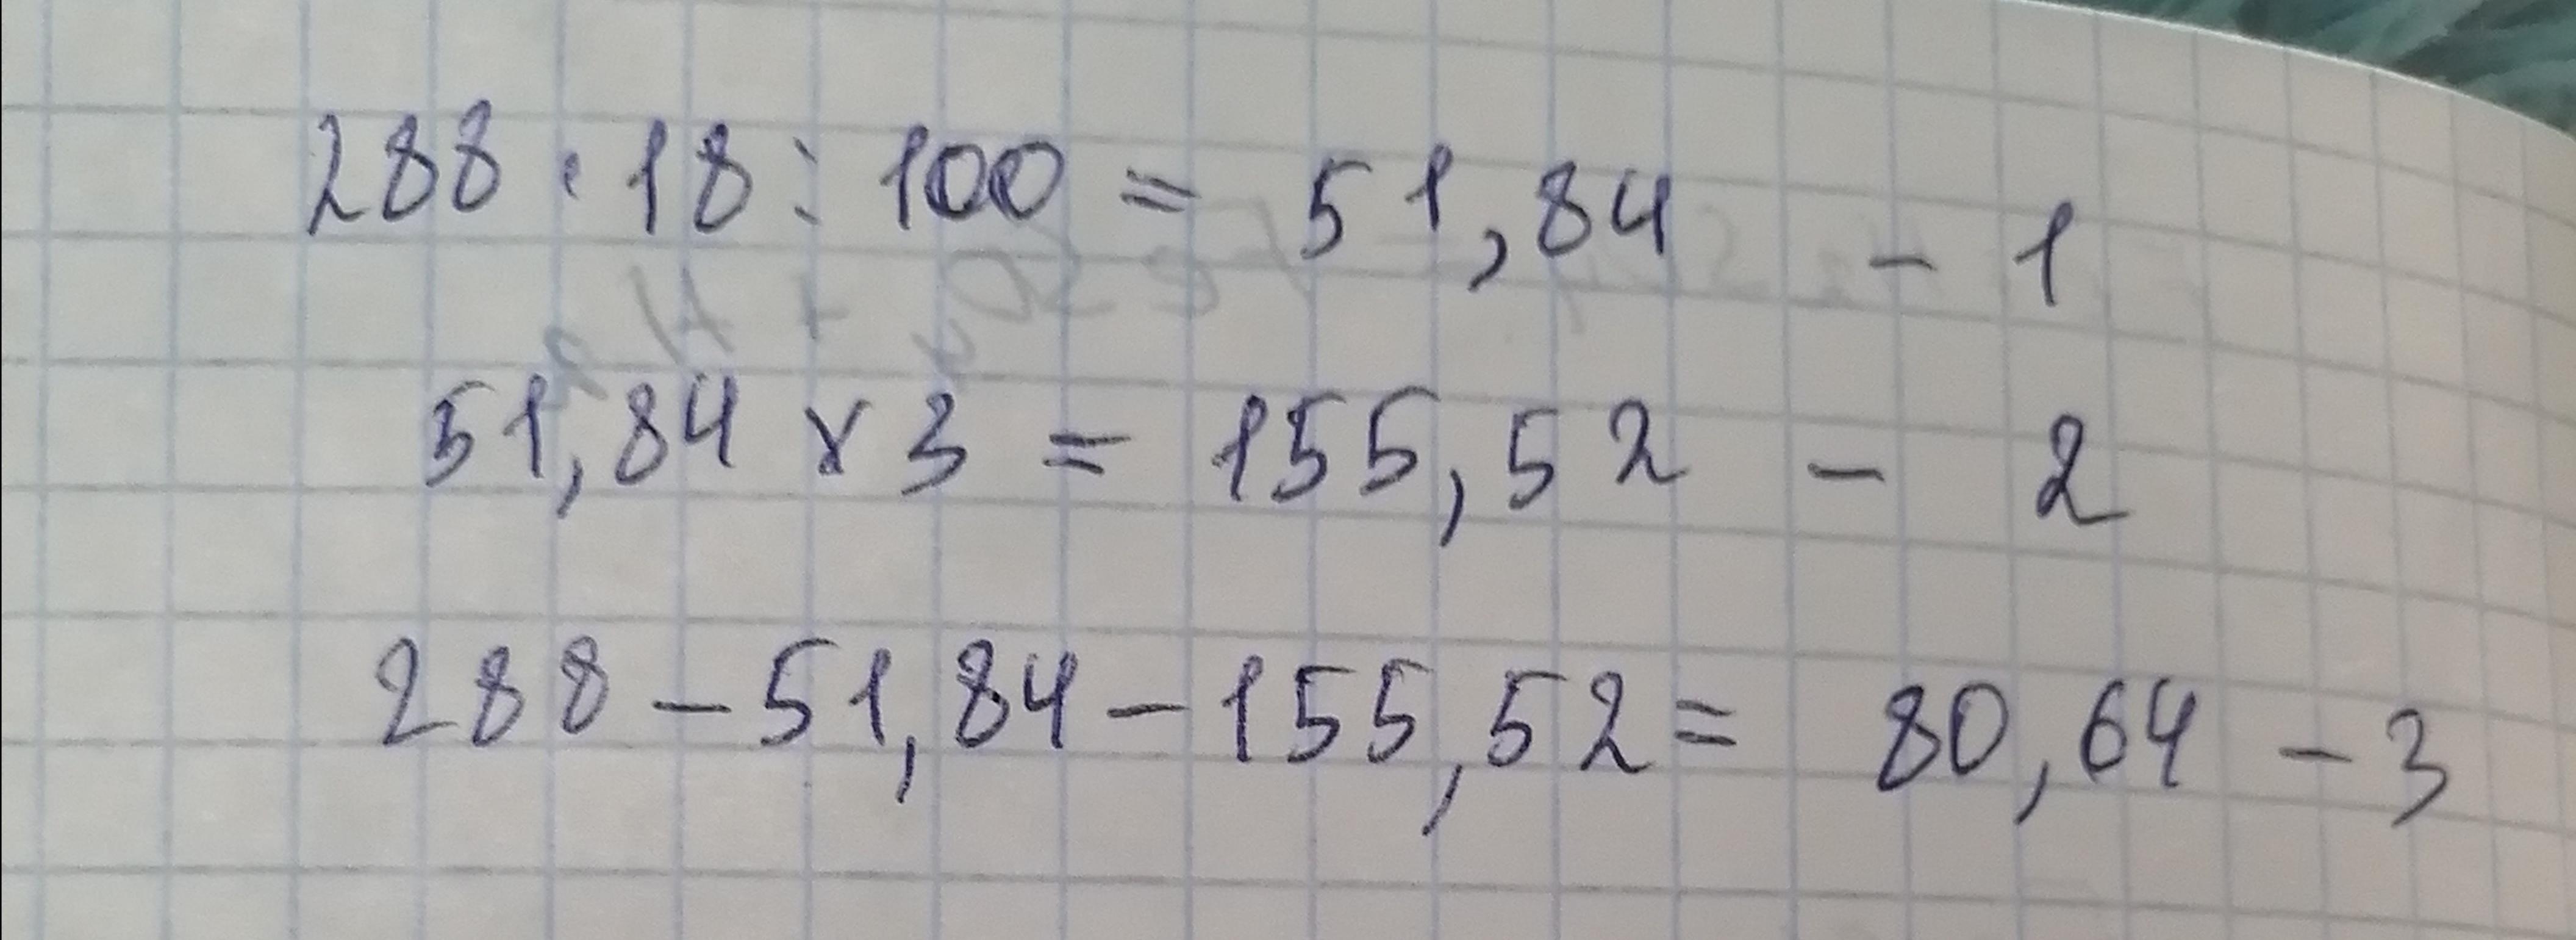 288 · 18 : 100 = 51,84 - 1
51,84 x 3 = 155,52 - 2
288 - 51,84 - 155,52 = 80,64 - 3